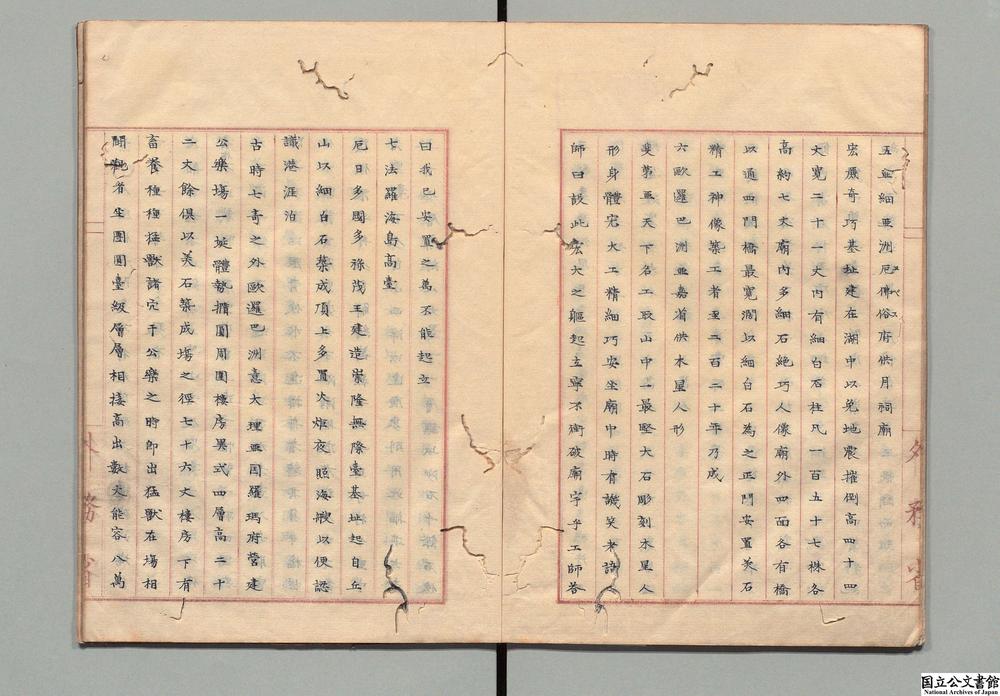 五亜細亜洲厄弗俗府供月祠廟
宏麗奇巧基址建在湖中以免地震摧倒高四十四
丈寬二十一丈内有細白石柱凡一百五十七株各
高約七丈廟内多細石絶巧人像廟外四面各有橋
以通四門橋最寬濶以細白石為之正門安置美石
精工神像築工者至二百二十年乃成
六歐邏巴洲亜嘉省供木星人形
斐第亜天下名工取山中一最堅大石彫刻木星人
形身體宏大工精細巧安坐廟中時有譏笑者語
師曰設此宏大之軀起立寧不衝破廟宇乎工師答
曰我已安置之萬不能起立
七法羅海島高臺
厄日多國多祿茂王建造崇隆無際臺基址起自丘
山以細白石築成頂上多置火炬夜照海艘以便認
識港涯泊
古時七奇之外歐邏巴洲意大理亜國羅瑪府營建
公樂塲一埞體勢擴圓周圍樓房異式四層高二十
二丈餘俱以美石築成塲之徑七十六丈樓房下有
畜養種種猛獸諸穴于公樂之時即出猛獸在塲相
鬪觀者坐團圓臺級層層相接高出數丈能容八萬
外務省
外務省
国立公文書館
National Archives of Japan